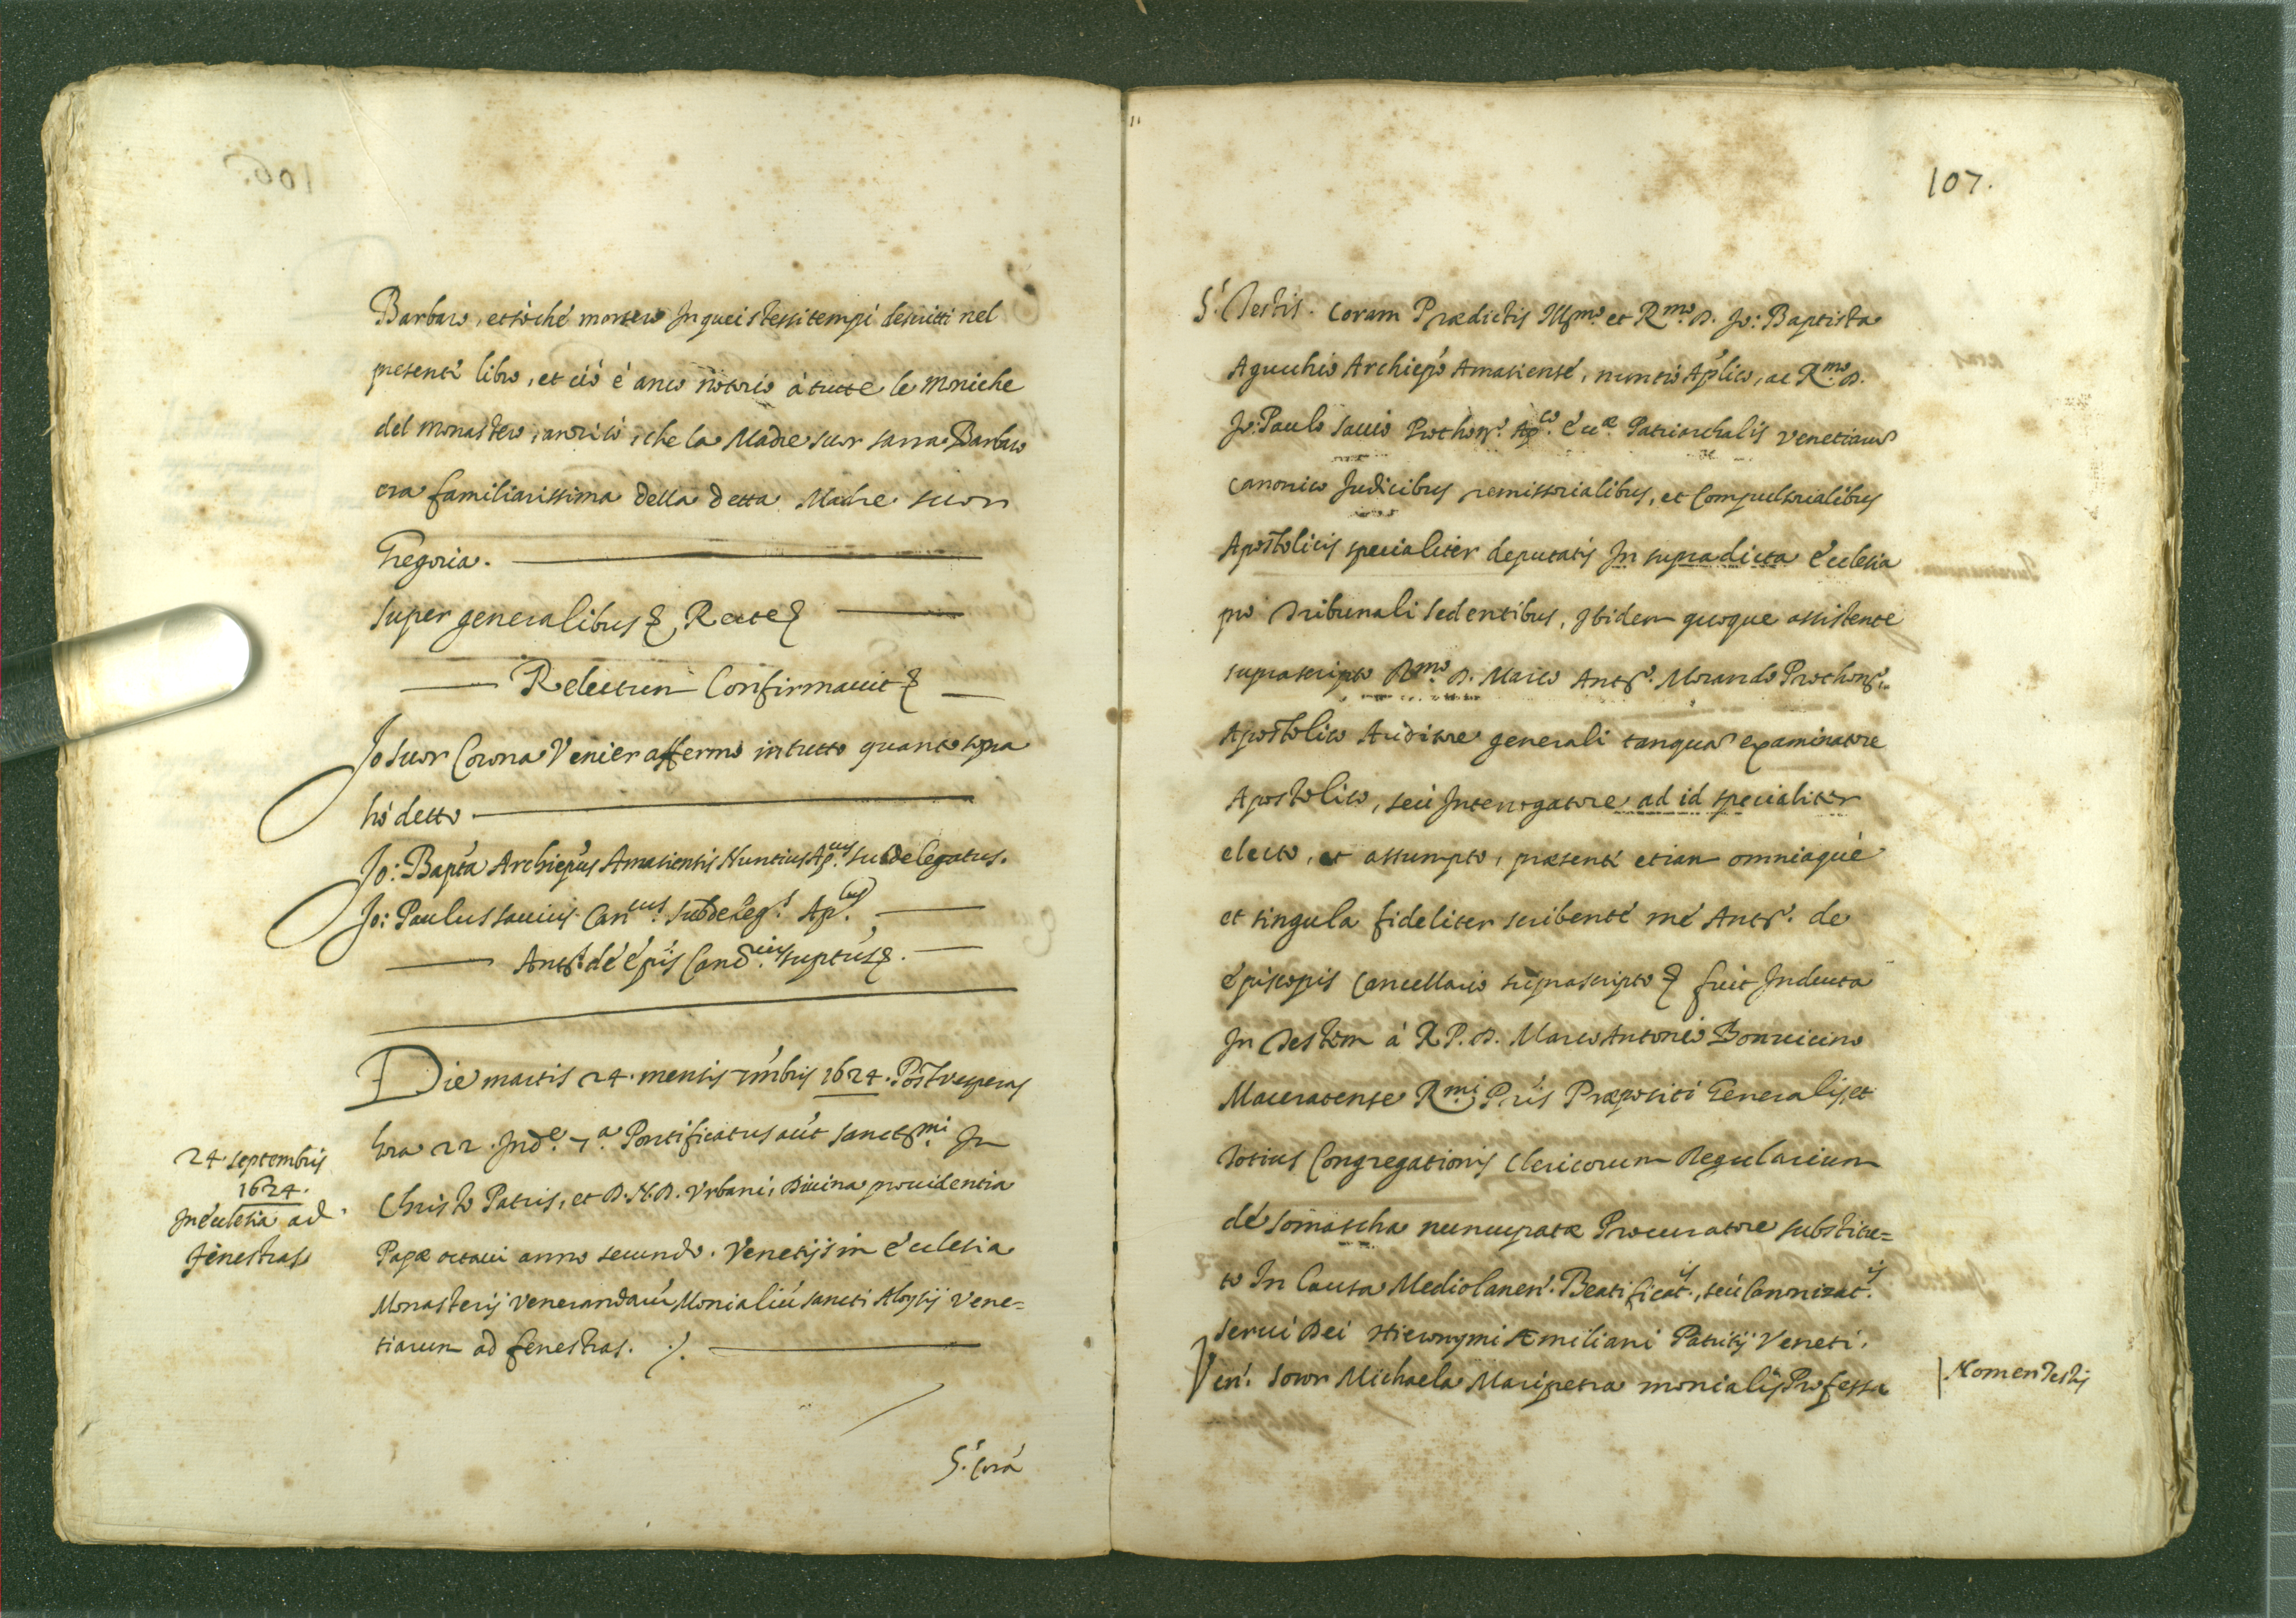 Barbaro, et sò che morsero In quei stessi tempi descritti nel
presente libro, et ciò è anco notorio à tutte le moniche
del monastero, anzi sò, che la Madre suor sarra Barbaro
era familiarissima della detta Madre suor
Gregoria.
super generalibus & Recte &
Relectum Confirmavit &
Jo suor Corona Venier affermo in tutto quanto sopra
hò detto
Jo: Bapta Archiepus Amasiensis Nuntius Ap.us subdelegatus.
Jo: Paulus savius Can.cus subdeleg.s Ap.cus
Ant.s de Epis Canc.ius suptus &.
Die martis 24. mensis 7mbris 1624. Post vesperas
hora 22. Ind.e 7.a Pontificatus aut sanctmi. In
Christo Patris, et D. N. D. Urbani, Divina providentia
Papæ octavi anno secundo. Venetijs in Ecclesia
Monasterij Venerandaru Monialiu sancti Aloysij Vene=
tiarum ad fenestras. ./.
24 septembris
1624.
In ecclesia ad
fenestras
5.s Corà
107.
5.s Testis. Coram Prædictis Illmo. et Rmo. D. Jo: Baptista
Agucchio Archiepo Amasiense, nuntio Aplico, ac Rmo. D.
Jo: Paulo savio Prothon.o Ap.co Ecc.æ Patriarchalis Venetiaru
canonico Judicibus remissorialibus, et Compulsorialibus
Apostolicis specialiter deputatis In supradicta Ecclesia
pro Tribunali sedentibus, Ibidem quoque assistente
suprascripto Rmo. D. Marco Ant.o Morando Prothon.o
Apostolico Auditore generali tanqua examinatore
Apostolico, seu Interrogatore ad id specialiter
electo, et assumpto, præsente etiam omniaque
et singula fideliter scribente me Ant.o de
Episcopis Cancellario suprascripto & fuit Inducta
In Testem à R. P. D. Marco Antonio Bonvicino
Maceratense Rmi. Pris Præpositi Generalis, et
totius Congregationis Clericorum Regularium
de somascha nuncupatæ Procuratore substitu=
to In Causa Mediolanen. Beatificat.is, seu Canonizat.is
servi Dei Hieronymi Æmiliani Patritij Veneti.
Ven. Soror Michaela Maripetra monialis Professa
Nomen Testis